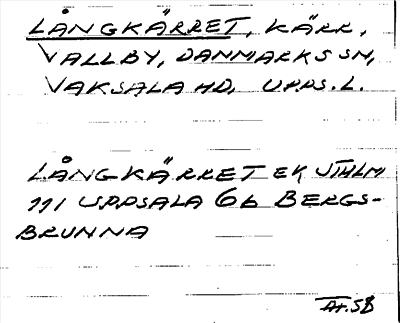 LÅNGKÄRRET, KÄRR,
VALLBY, DANMARKS SN,
VAKSALA HD, UPPS. L.
LÅNGKÄRRET EK UTHLM
111 UPPSALA 6b BERGS-
BRUNNA